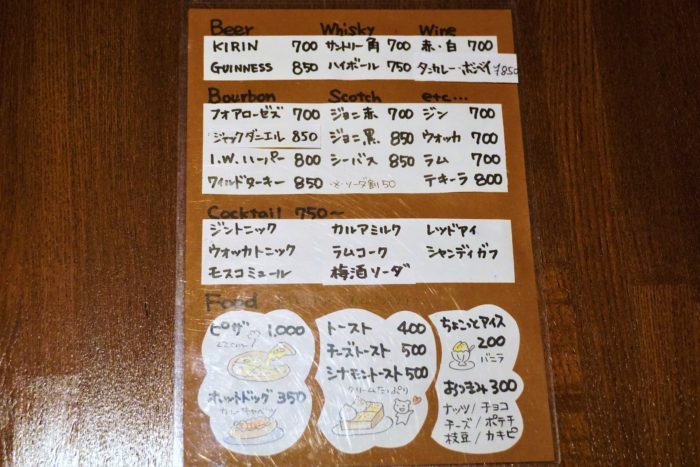 Beer
KIRIN 700
GUINNESS 850
Whisky
サントリー角 700
ハイボール 750
Wine
赤・白 700
タンカレー・ボンベイ 850
Bourbon
フォアローゼズ 700
ジャックダニエル 850
I.W.ハーパー 800
ワイルドターキー 850
Scotch
ジョニ赤 700
ジョニ黒 850
シーバス 850
※ソーダ割 50
etc…
ジン 700
ウォッカ 700
ラム 700
テキーラ 800
Cocktail 750〜
ジントニック
ウォッカトニック
モスコミュール
カルアミルク
ラムコーク
梅酒ソーダ
レッドアイ
シャンディガフ
Food
ピザ 1,000
22cm!
ホットドッグ 350
カレーキャベツ
トースト 400
チーズトースト 500
シナモントースト 500
クリームたっぷり
ちょこっとアイス
200
バニラ
おつまみ 300
ナッツ/チョコ
チーズ/ポテチ
枝豆/カキピ